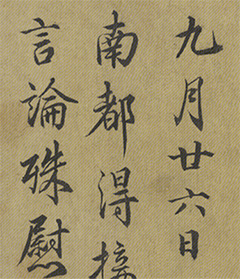 九月廿六日
南都得接
言論殊慰